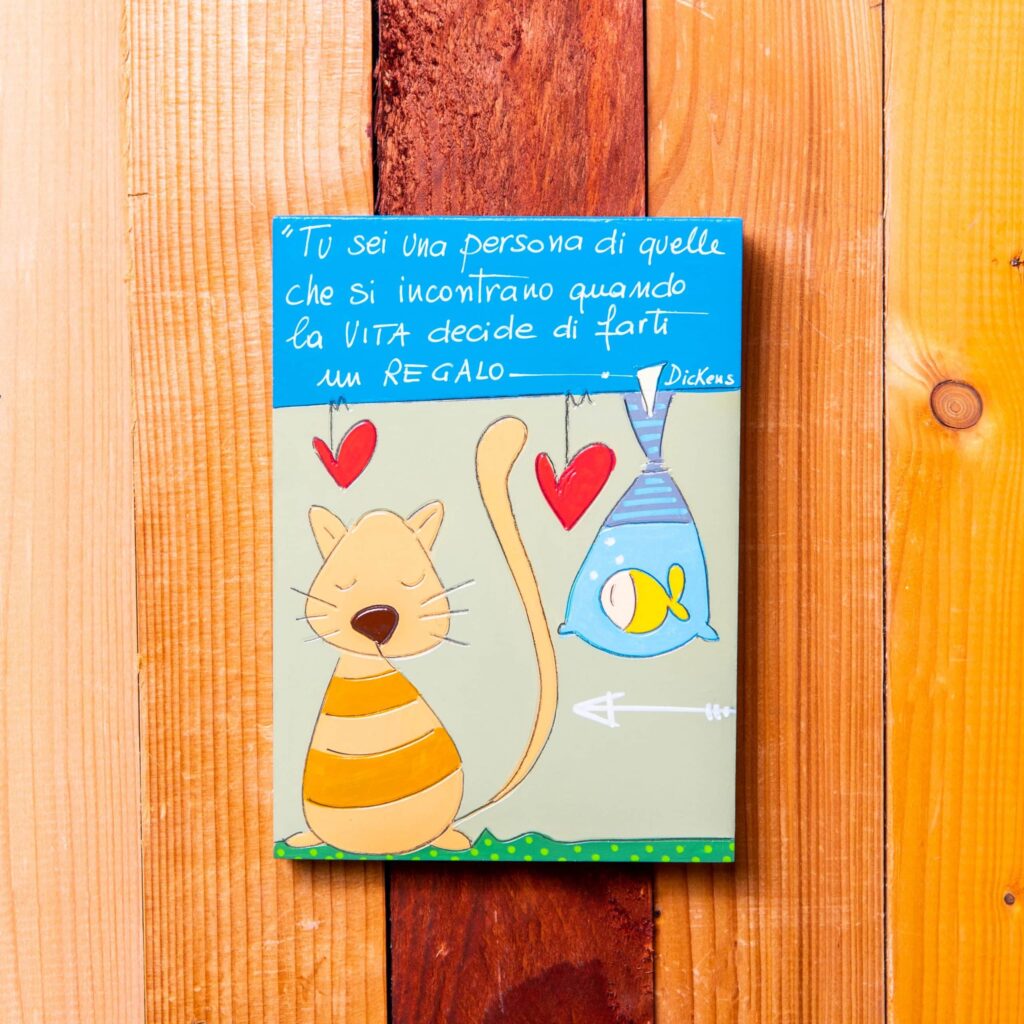 "Tu sei una persona di quelle
che si incontrano quando
la VITA decide di farti
un REGALO
Dickens